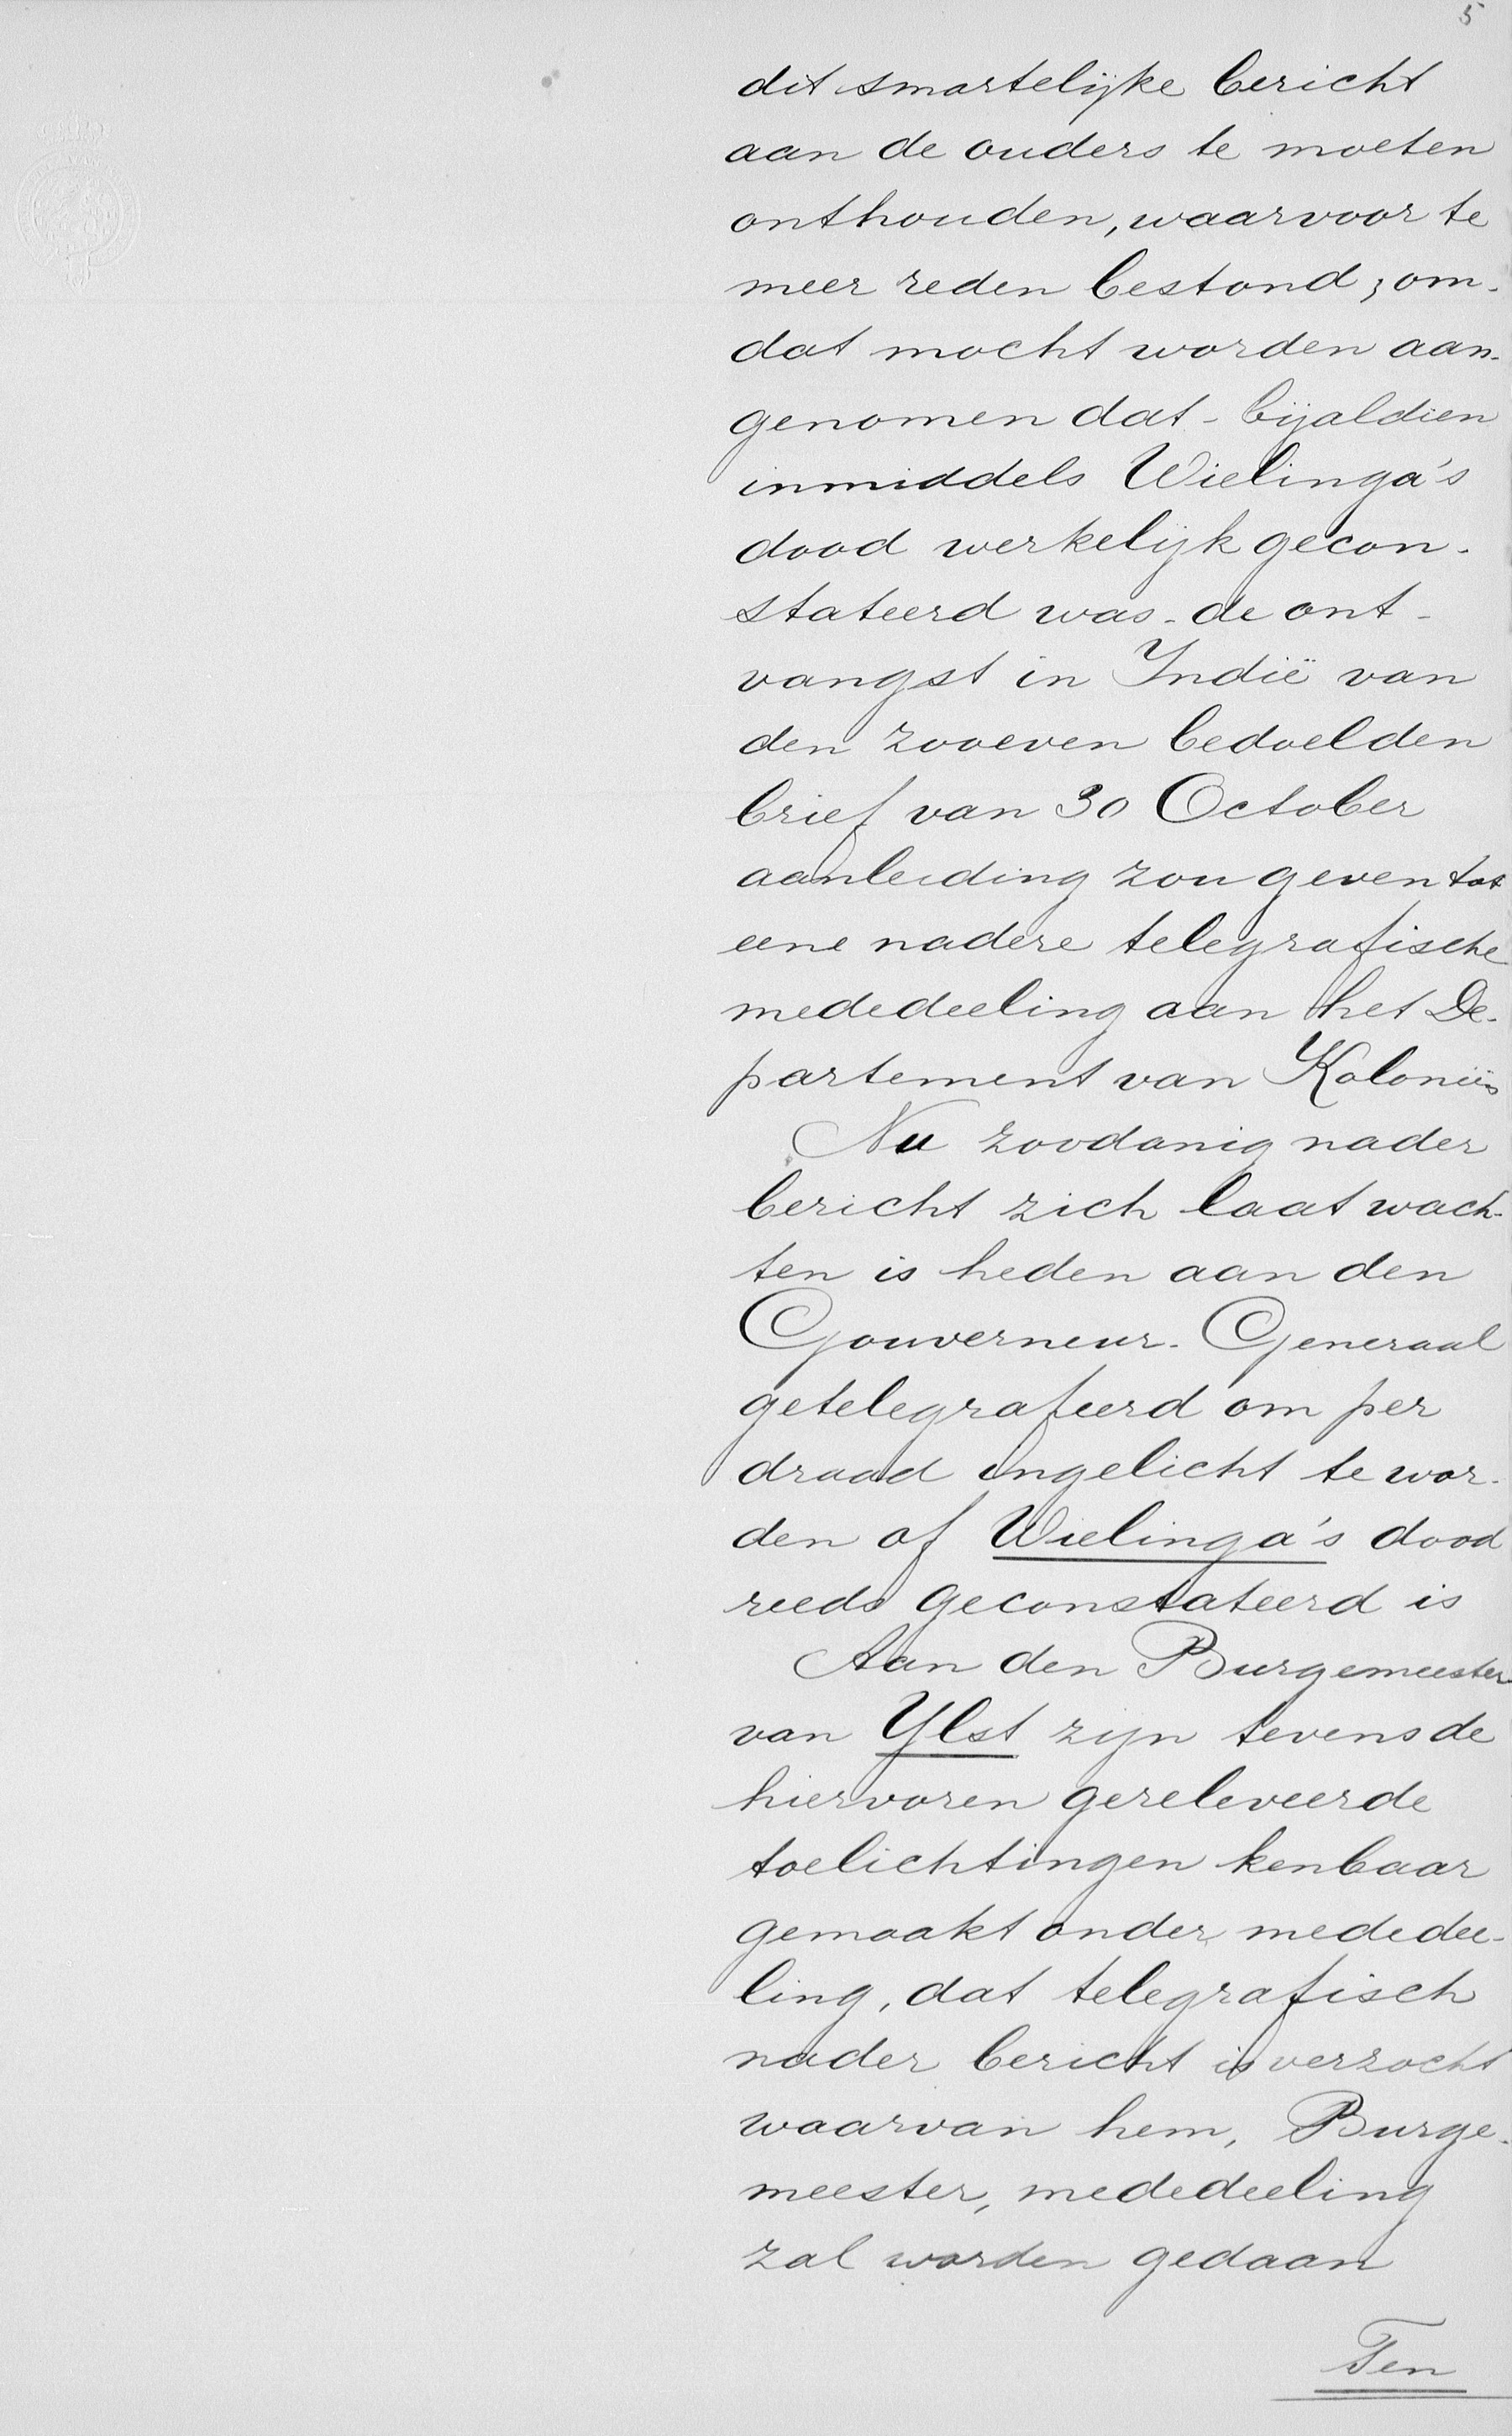 5
dit smartelijke bericht
aan de ouders te moeten
onthouden, waarvoor te
meer reden bestond, om-
dat mocht worden aan-
genomen dat - bijaldien
inmiddels Wielinga's
dood werkelijk gecon-
stateerd was - de ont-
vangst in Indië van
den zooeven bedoelden
brief van 30 October
aanleiding zou geven tot
eene nadere telegrafische
mededeeling aan het De-
partement van Koloniën
Nu zoodanig nader
bericht zich laat wach-
ten is heden aan den
Gouverneur-Generaal
getelegrafeerd om per
draad ingelicht te wor-
den of Wielinga's dood
reeds geconstateerd is
Aan den Burgemeester
van Ylst zijn tevens de
hiervoren gereleveerde
toelichtingen kenbaar
gemaakt onder mededee-
ling, dat telegrafisch
nader bericht is verzocht
waarvan hem, Burge-
meester, mededeeling
zal worden gedaan
Ten